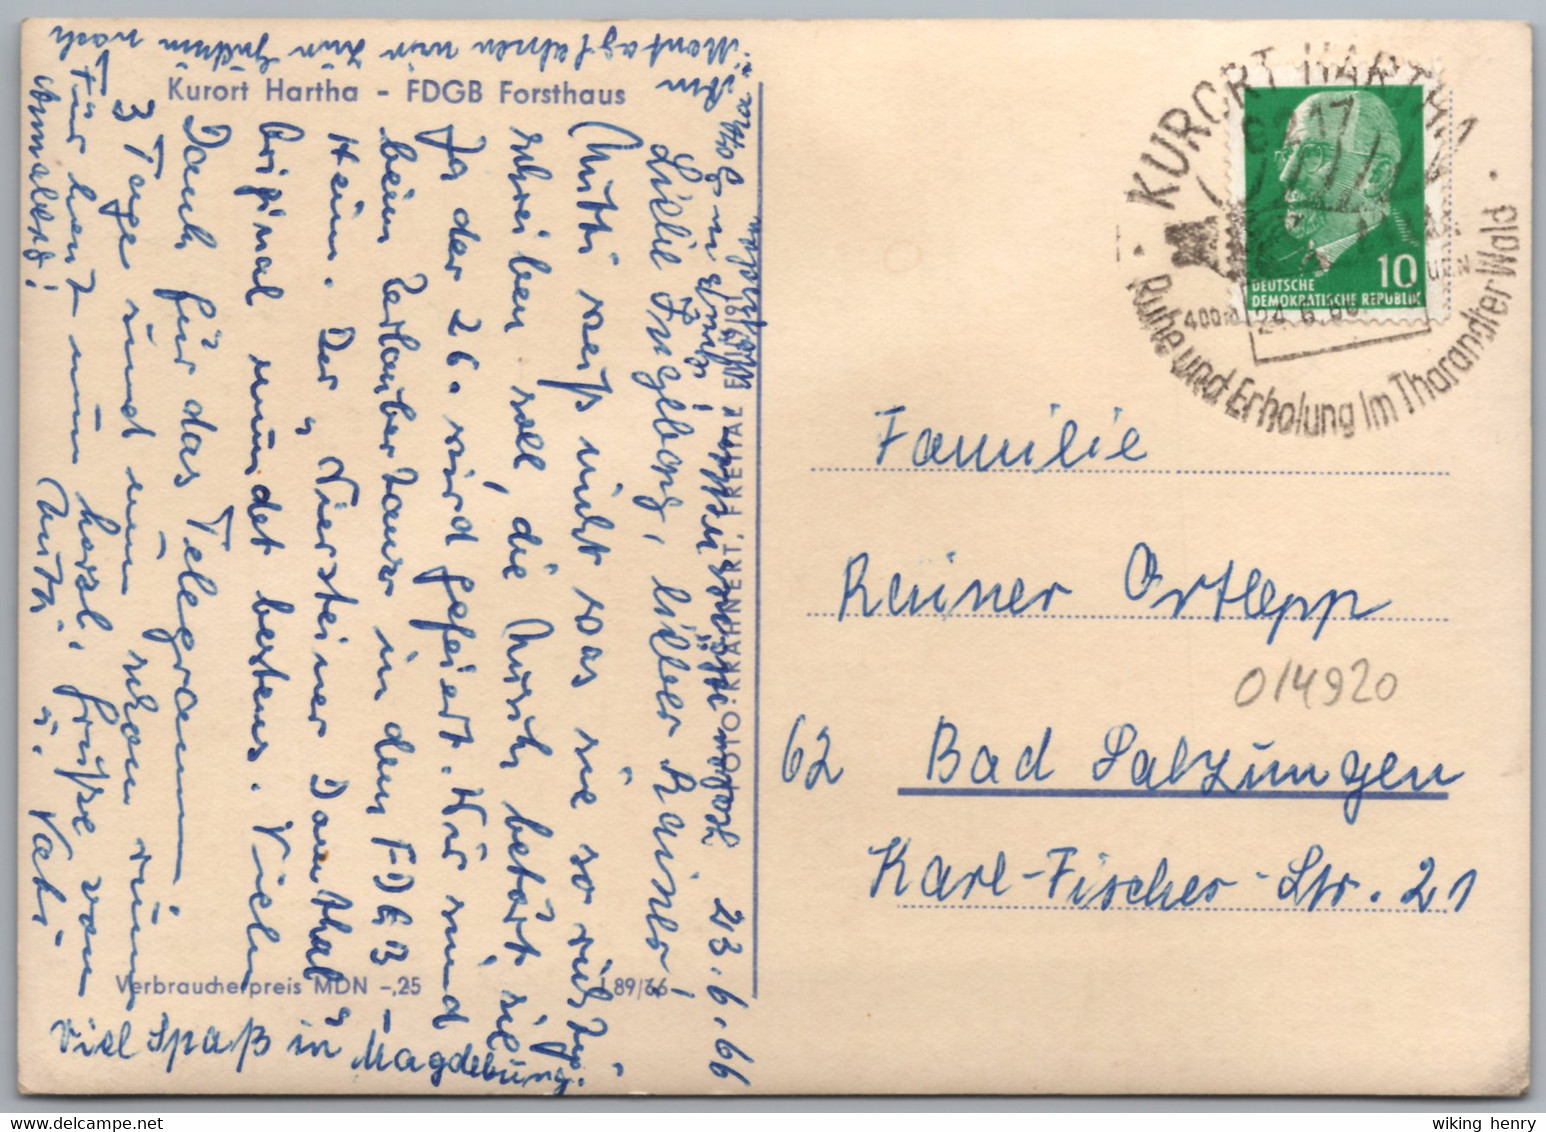 Kurort Hartha - FDGB Forsthaus
23.6.66
Liebe Ingeborg, lieber Rainer!
Mutti weiß nicht was sie so
schreiben soll, die Musik betört sie.
Ja der 26. wird gefeiert. Wir sind
beim Urlaubertanz in dem FDGB-
Heim. Der "Niersteiner Domthal"
Original mundet bestens. Vielen
Dank für das Telegramm
3 Tage sind nun schon rum
Für heut nun herzl. Grüße von
Mutti u. Vati
Viel Spaß in Magdeburg.
Am Montag fahren wir
Verbraucherpreis MDN -,25
I 89/66
FOTO: KRAHNERT, FREITAL
KURORT HARTHA
Ruhe und Erholung im Tharandter Wald
400m
24.6.66
10
DEUTSCHE
DEMOKRATISCHE REPUBLIK
Familie
Reiner Ortlepp
014920
62 Bad Salzungen
Karl-Fischer-Str. 21
wiking henry